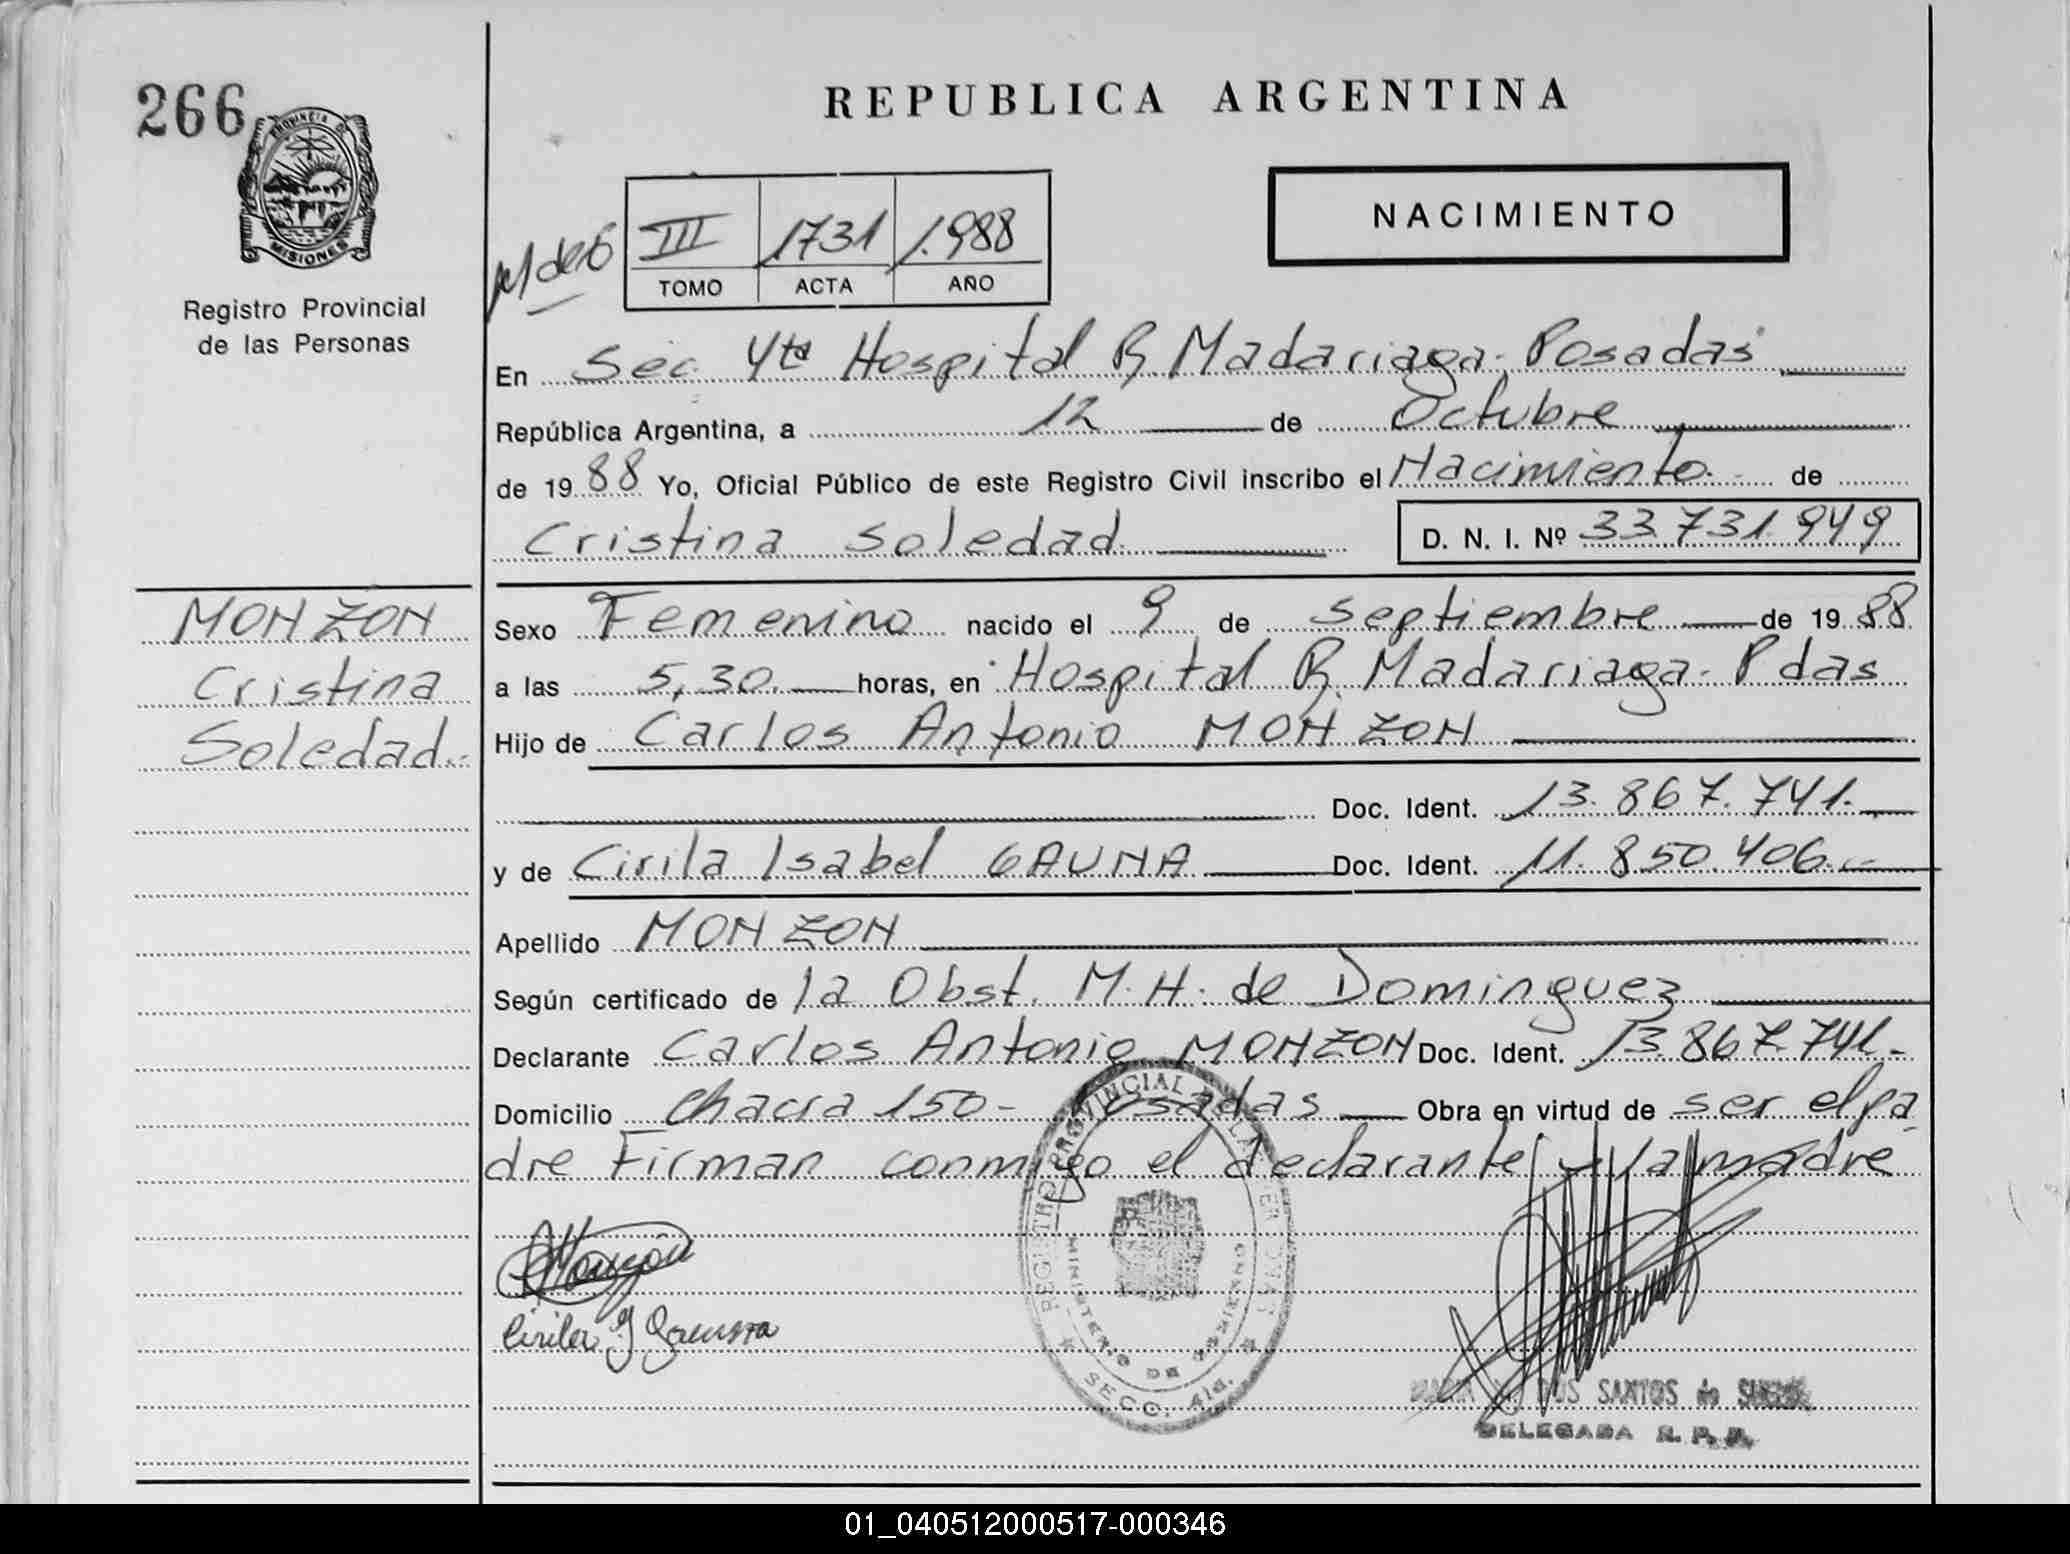 266
PROVINCIA DE
MISIONES
Registro Provincial
de las Personas
REPUBLICA ARGENTINA
NACIMIENTO
III 1731 1.988
TOMO ACTA AÑO
En Sec. 4ta Hospital R. Madariaga. Posadas
República Argentina, a 12 de Octubre
de 1988 Yo, Oficial Público de este Registro Civil inscribo el Nacimiento. de
Cristina Soledad. D. N. I. Nº 33.731.949
MONZON
Cristina
Soledad.-
Sexo Femenino nacido el 9 de septiembre de 1988.
a las 5,30. horas, en Hospital R. Madariaga. Pdas
Hijo de Carlos Antonio MONZON
Doc. Ident. 13.867.741.
y de Cirila Isabel GAUNA Doc. Ident. 11.850.406.-
Apellido MONZON
Según certificado de la Obst. M.H. de Dominguez
Declarante Carlos Antonio MONZON Doc. Ident. 13.867.741.-
Domicilio Chacra 150- Posadas Obra en virtud de ser el pa
dre Firman conmigo el declarante y la madre
Monzón
Cirila I Gauna
REGISTRO PROVINCIAL DE LAS
MINISTERIO DE GOBIERNO
SECC. 4ta.
DOS SANTOS de
DELEGADA R. P. P.
01_040512000517-000346